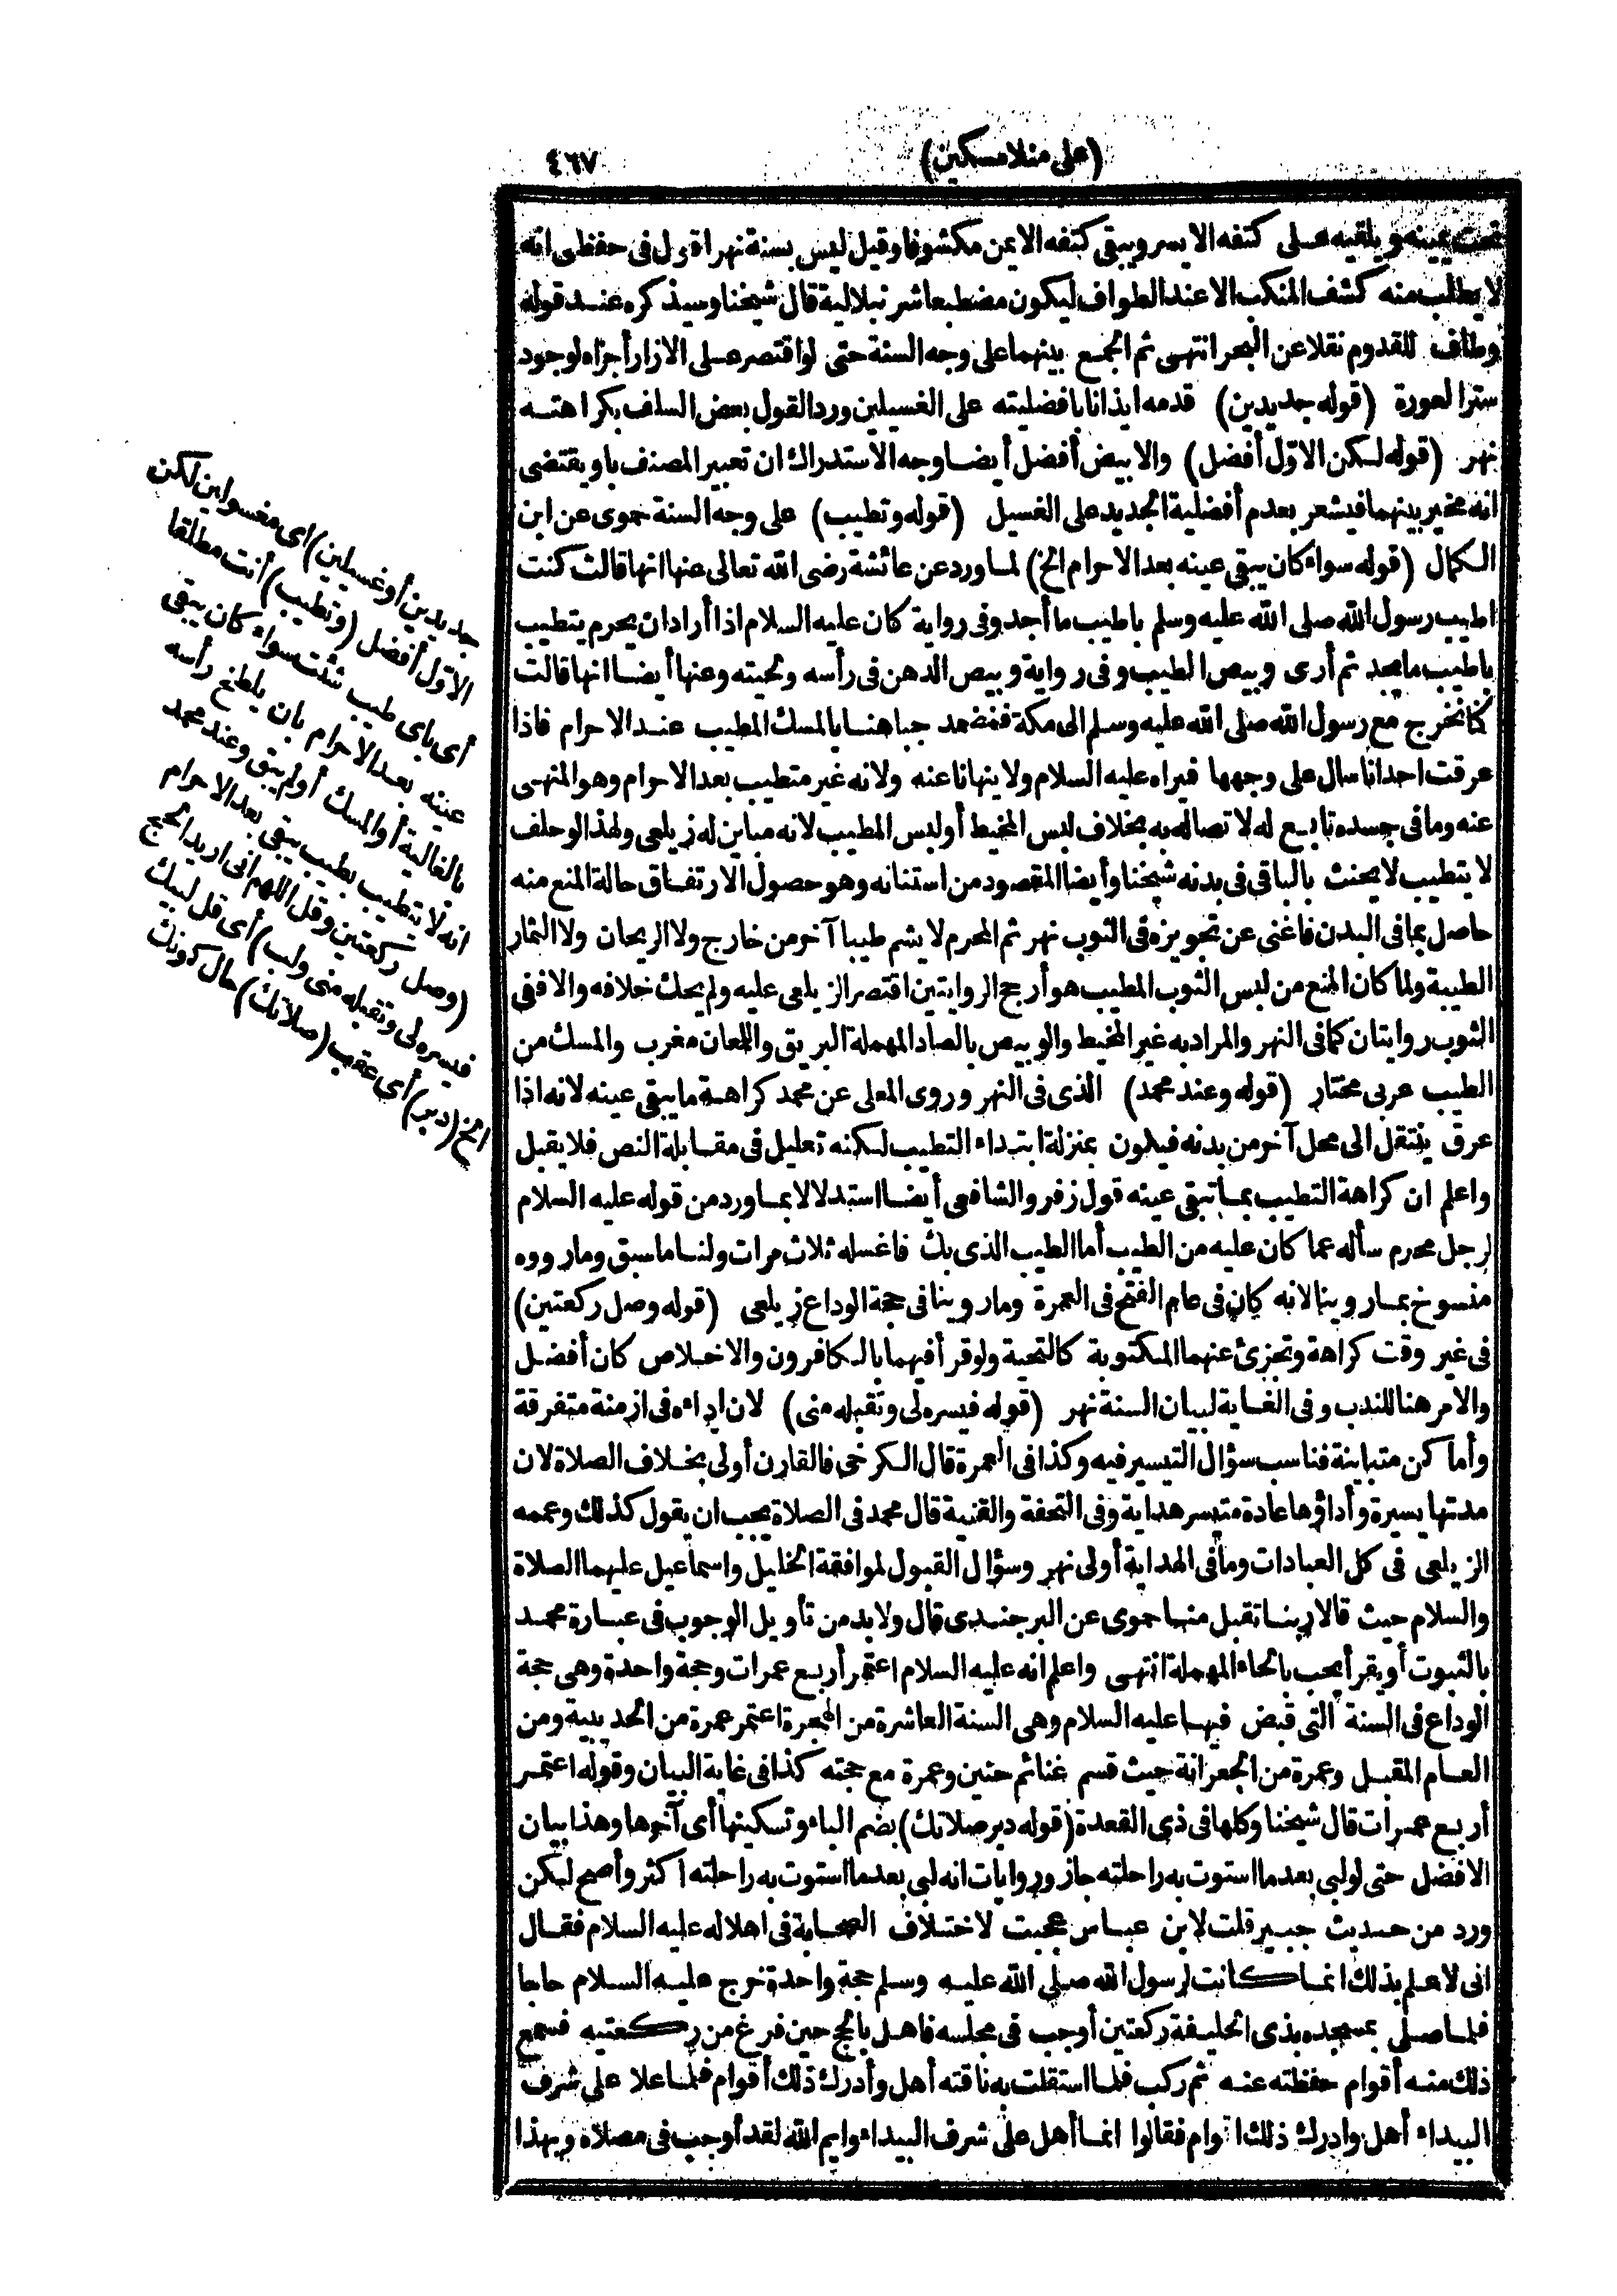 (على منلا مسكين)
٤٦٧
تحت يمينه ويلقيه على كتفه الايسر ويبقى كتفه الايمن مكشوفا وقيل ليس بسنة نهر اقول فى حفظى انه
لا يطلب منه كشف المنكب الا عند الطواف ليكون مضطبعا شرنبلالية قال شيخنا وسيذكره عند قوله
وطاف للقدوم نقلا عن البحر انتهى ثم الجمع بينهما على وجه السنة حتى لو اقتصر على الازار أجزاه لوجود
ستر العورة (قوله جديدين) قدمه ايذانا بافضليته على الغسيلين ورد القول بعض السلف بكراهته
نهر (قوله لكن الاوّل أفضل) والابيض أفضل أيضا وجه الاستدراك ان تعبير المصنف باو يقتضى
انه مخير بينهما فيشعر بعدم أفضلية الجديد على الغسيل (قوله وتطيب) على وجه السنة حموى عن ابن
الكمال (قوله سواء كان يبقى عينه بعد الاحرام الخ) لما ورد عن عائشة رضى الله تعالى عنها انها قالت كنت
اطيب رسول الله صلى الله عليه وسلم باطيب ما أجد وفى رواية كان عليه السلام اذا أراد ان يحرم يتطيب
باطيب ما يجد ثم أرى وبيص الطيب وفى رواية وبيص الدهن فى رأسه ولحيته وعنها أيضا انها قالت
كنا نخرج مع رسول الله صلى الله عليه وسلم الى مكة فنضمد جباهنا بالمسك المطيب عند الاحرام فاذا
عرقت احدانا سال على وجهها فيراه عليه السلام ولا ينهانا عنه ولانه غير متطيب بعد الاحرام وهو المنهى
عنه وما فى جسده تابع له لاتصاله به بخلاف لبس المخيط أو لبس المطيب لانه مباين له زيلعى ولهذا لو حلف
لا يتطيب لا يحنث بالباقى فى بدنه شيخنا وأيضا المقصود من استنانه وهو حصول الارتفاق حالة المنع منه
حاصل بما فى البدن فاغنى عن تجويزه فى الثوب نهر ثم المحرم لا يشم طيبا آخر من خارج ولا الريحان ولا الثمار
الطيبة ولما كان المنع من لبس الثوب المطيب هو أرجح الروايتين اقتصر الزيلعى عليه ولم يحك خلافه والا ففى
الثوب روايتان كما فى النهر والمراد به غير المخيط والوبيص بالصاد المهملة البريق واللمعان مغرب والمسك من
الطيب عربى مختار (قوله وعند محمد) الذى فى النهر وروى المعلى عن محمد كراهة ما يبقى عينه لانه اذا
عرق ينتقل الى محل آخر من بدنه فيكون بمنزلة ابتداء التطيب لكنه تعليل فى مقابلة النص فلا يقبل
واعلم ان كراهة التطيب بما تبقى عينه قول زفر والشافعى أيضا استدلالا بما ورد من قوله عليه السلام
لرجل محرم سأله عما كان عليه من الطيب أما الطيب الذى بك فاغسله ثلاث مرات ولنا ما سبق وما رووه
منسوخ بما روينا لانه كان فى عام الفتح فى العمرة وما روينا فى حجة الوداع زيلعى (قوله وصل ركعتين)
فى غير وقت كراهة وتجزئ عنهما المكتوبة كالتحية ولو قرأ فيهما بالكافرون والاخلاص كان أفضل
والامر هنا للندب وفى الغاية لبيان السنة نهر (قوله فيسره لى وتقبله منى) لان اداءه فى ازمنة متفرقة
وأماكن متباينة فناسب سؤال التيسير فيه وكذا فى العمرة قال الكرخى فالقارن أولى بخلاف الصلاة لان
مدتها يسيرة وأداؤها عادة متيسر هداية وفى التحفة والقنية قال محمد فى الصلاة يجب ان يقول كذلك وعممه
الزيلعى فى كل العبادات وما فى الهداية أولى نهر وسؤال القبول لموافقة الخليل واسماعيل عليهما الصلاة
والسلام حيث قالا ربنا تقبل منا حموى عن البرجندى قال ولا بد من تأويل الوجوب فى عبارة محمد
بالثبوت أو يقرأ يحب بالحاء المهملة انتهى واعلم انه عليه السلام اعتمر أربع عمرات وحجة واحدة وهى حجة
الوداع فى السنة التى قبض فيها عليه السلام وهى السنة العاشرة من الهجرة اعتمر عمرة من الحديبية ومن
العام المقبل وعمرة من الجعرانة حيث قسم غنائم حنين وعمرة مع حجته كذا فى غاية البيان وقوله اعتمر
أربع عمرات قال شيخنا وكلها فى ذى القعدة (قوله دبر صلاتك) بضم الباء وتسكينها أى آخرها وهذا بيان
الافضل حتى لو لبى بعد ما استوت به راحلته جاز وروايات انه لبى بعد ما استوت به راحلته أكثر وأصح لكن
ورد من حديث جبير قلت لابن عباس عجبت لاختلاف الصحابة فى اهلاله عليه السلام فقال
انى لاعلم بذلك انما كانت لرسول الله صلى الله عليه وسلم حجة واحدة خرج عليه السلام حاجا
فلما صلى بمسجده بذى الحليفة ركعتين أوجب فى مجلسه فاهل بالحج حين فرغ من ركعتيه فسمع
ذلك منه أقوام حفظته عنه ثم ركب فلما استقلت به ناقته أهل وأدرك ذلك أقوام فلما علا على شرف
البيداء أهل وادرك ذلك اقوام فقالوا انما أهل على شرف البيداء وايم الله لقد أوجب فى مصلاه وبهذا
جديدين أو غسيلين) اى مغسولين لكن
الاوّل أفضل (وتطيب) أنت مطلقا
أى باى طيب شئت سواء كان يبقى
عينه بعد الاحرام بان يلطخ رأسه
بالغالية أو المسك أو لم يبق وعند محمد
انه لا تتطيب بطيب يبقى بعد الاحرام
(وصل ركعتين وقل اللهم انى اريد الحج
فيسره لى وتقبله منى ولب) أى قل لبيك
الخ (دبر) أى عقب (صلاتك) حال كونك